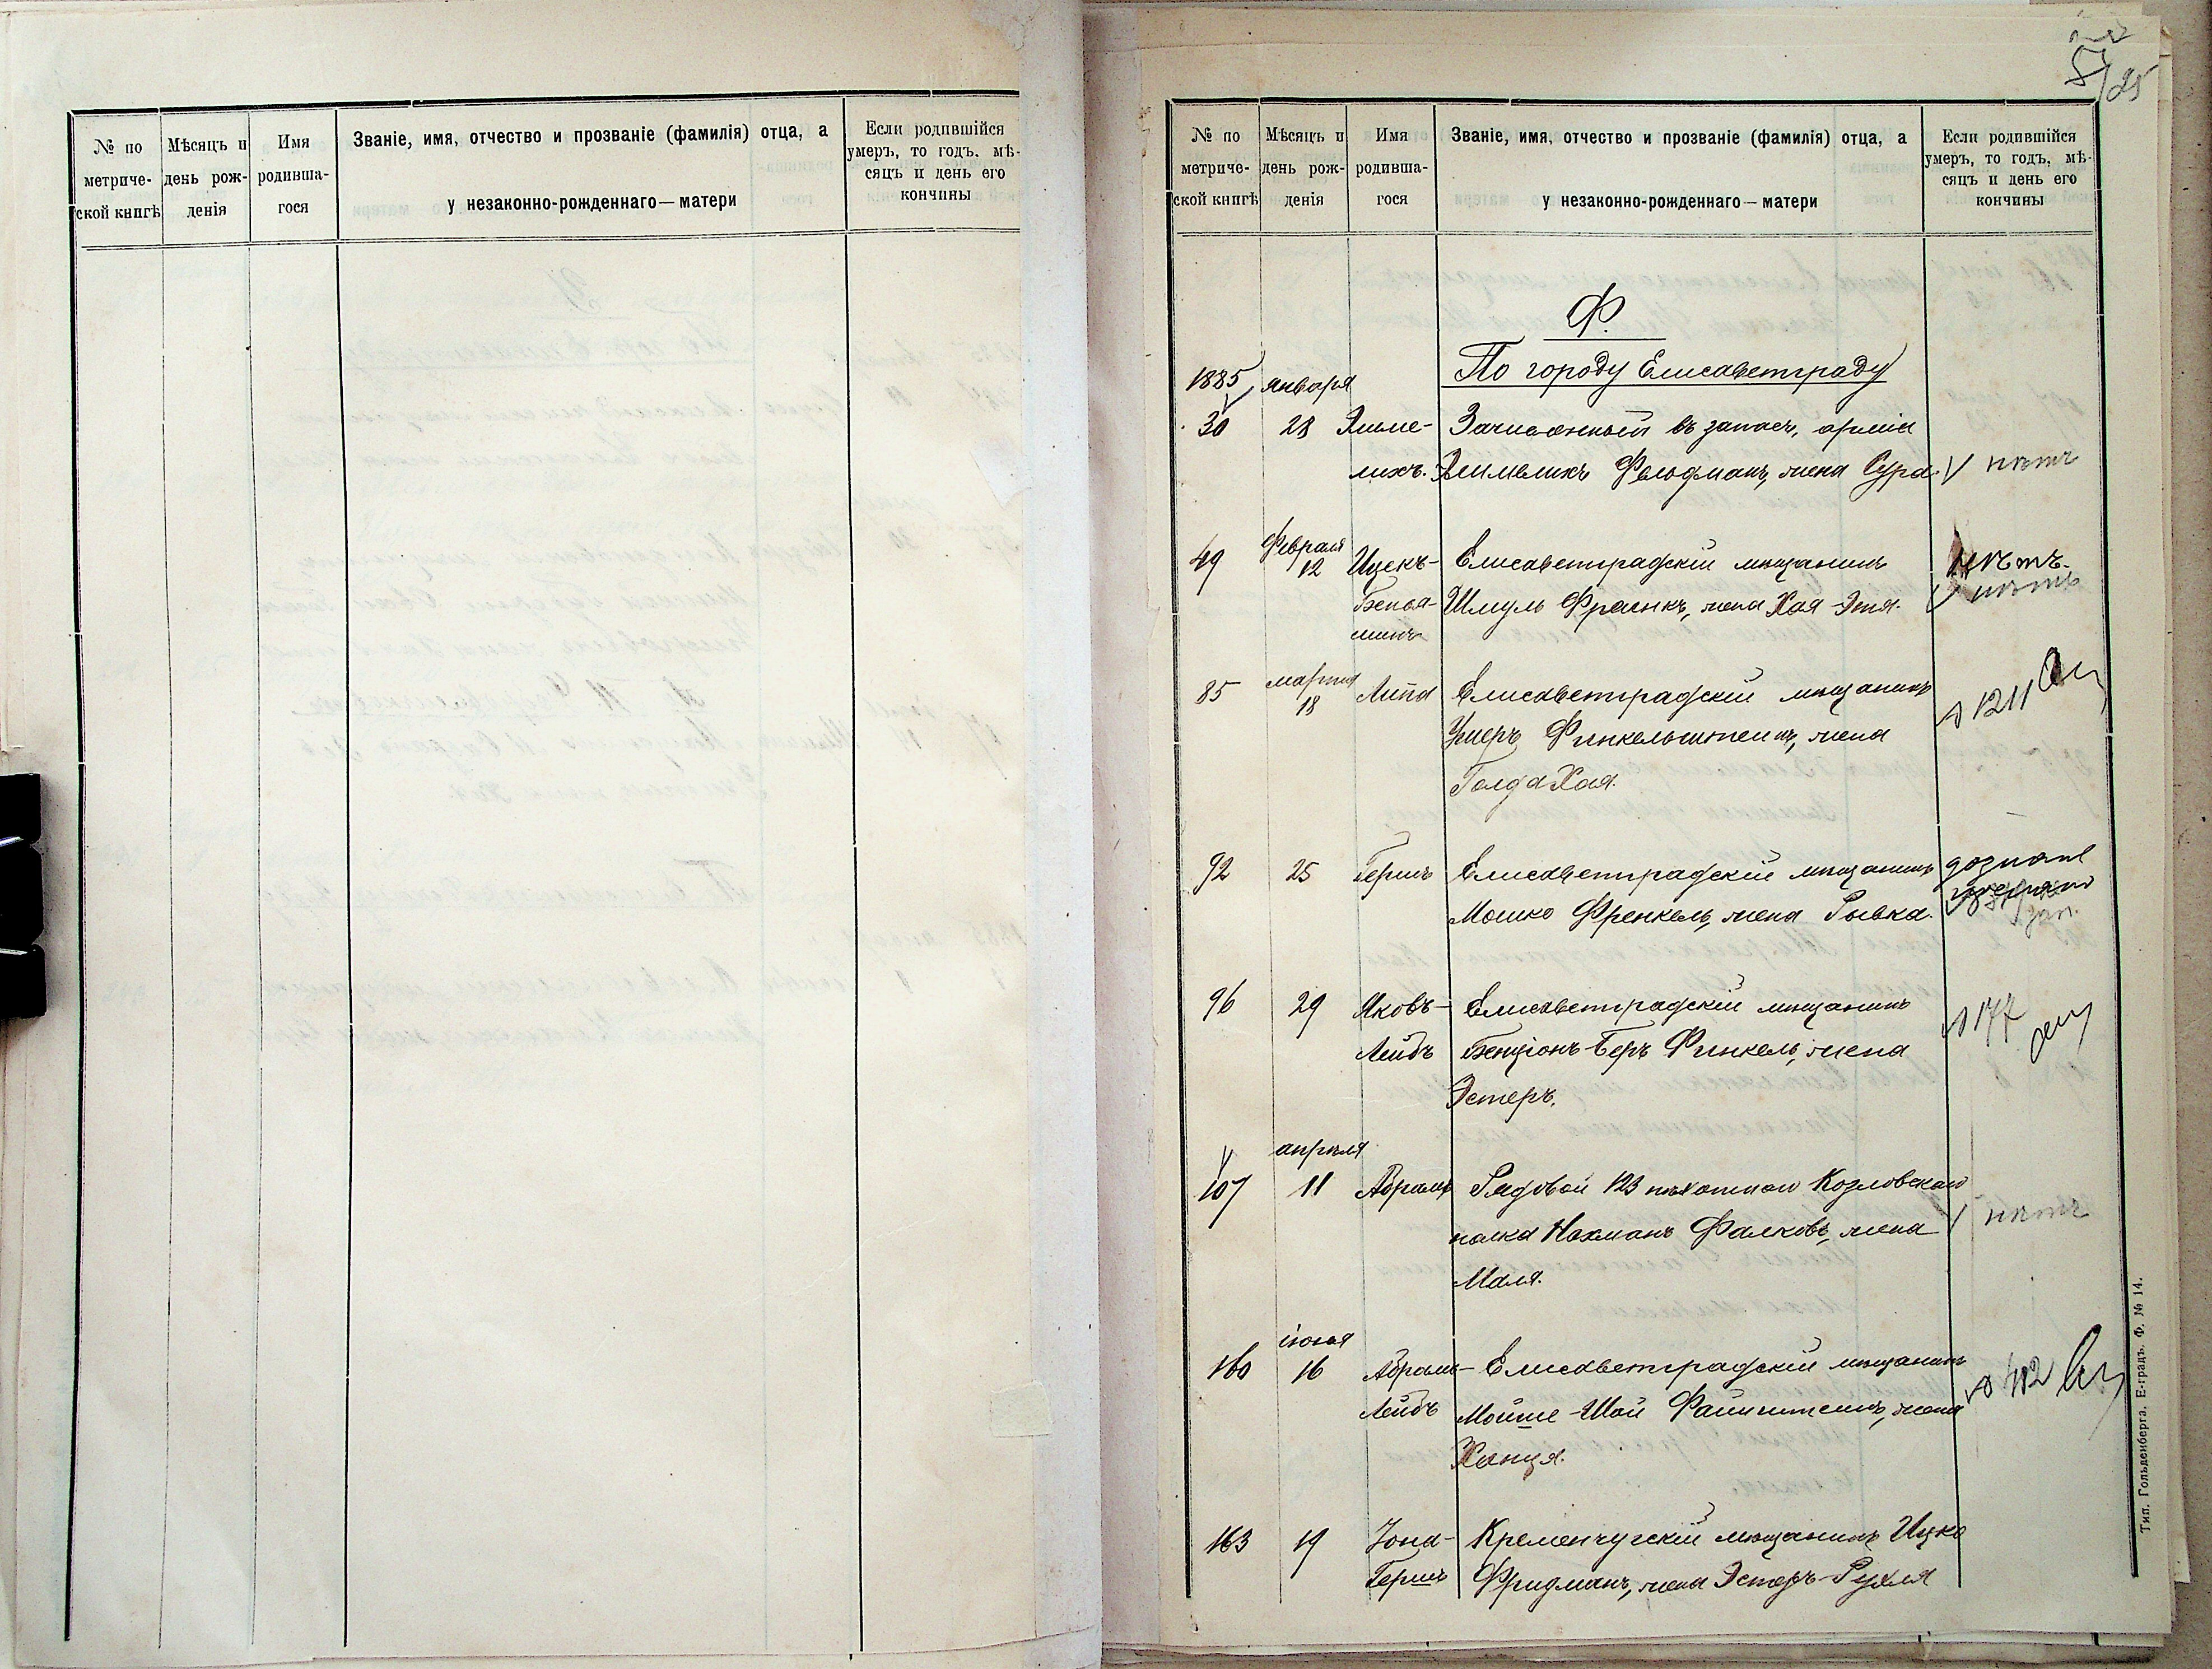 № по метриче- ской книгѣ
Мѣсяцъ и день рож- денія
Имя родивша- гося
Званіе, имя, отчество и прозваніе (фамилія) отца, а
у незаконно-рожденнаго — матери
Если родившійся умеръ, то годъ, мѣ- сяцъ и день его кончины
№ по метриче- ской книгѣ
Мѣсяцъ и день рож- денія
Имя родивша- гося
Званіе, имя, отчество и прозваніе (фамилія) отца, а
у незаконно-рожденнаго — матери
Если родившійся умеръ, то годъ, мѣ- сяцъ и день его кончины
Ф.
По городу Елисаветграду
1885 января
30 28 Элиме- Зачисленный въ запасъ арміи
лихъ. Элимелихъ Фельдманъ, жена Сура. нѣтъ
февраля
49 12 Ицекъ- Елисаветградскій мѣщанинъ нѣтъ.
Бенья- Шмуль Френкъ, жена Хая-Этя. нѣтъ
минъ
марта
85 18 Липа Елисаветградскій мѣщанинъ 1211
Умеръ Финкельштейнъ, жена
Голда Хая.
92 25 Гершъ Елисаветградскій мѣщанинъ дознаніе
Мошко Френкель, жена Рывка.
96 29 Яковъ- Елисаветградскій мѣщанинъ 177
Лейбъ Бенціонъ-Беръ Финкель, жена
Эстеръ.
апрѣля
107 11 Абрамъ Рядовой 123 пѣхотнаго Козловскаго
полка Нахманъ Фалковъ, жена нѣтъ
Маля.
іюня
160 16 Абрамъ- Елисаветградскій мѣщанинъ 412
Лейбъ Мойше-Шая Файнштейнъ, жена
Ханця.
163 19 Іона- Кременчугскій мѣщанинъ Ицко
Гершъ Фридманъ, жена Эстеръ-Рухля
Тип. Гольденберга. Е-градъ. Ф. № 14.